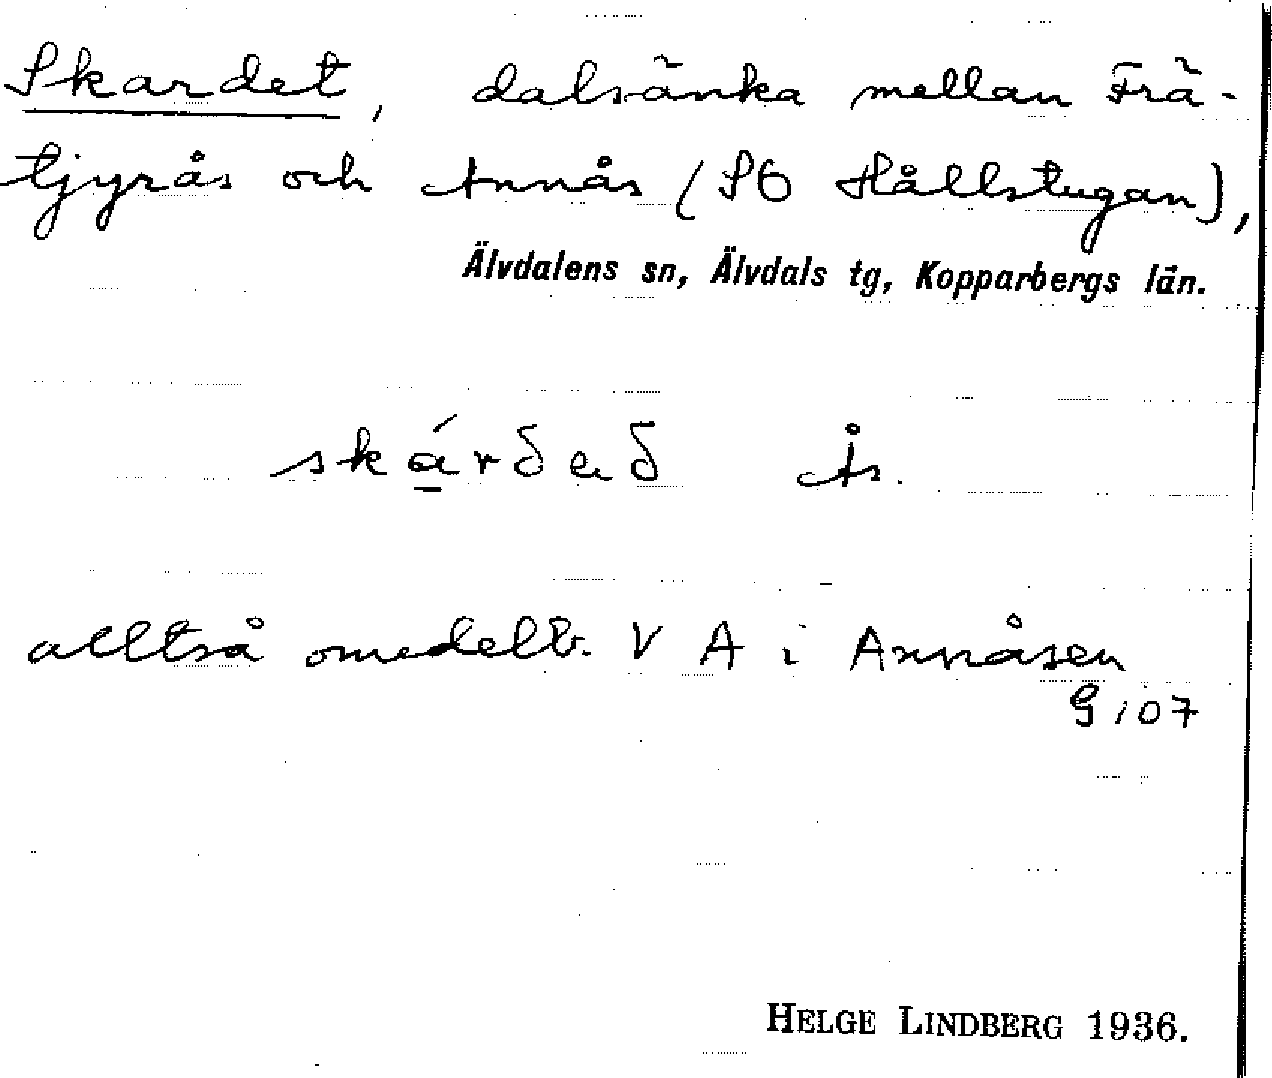 Skardet, dalsänka mellan Frä-
tjyrås och Annås (SO Hållstugan),
Älvdalens sn, Älvdals tg, Kopparbergs län.
skárðeð Ås.
alltså omedelb. V A i Annåsen
G 107
HELGE LINDBERG 1936.